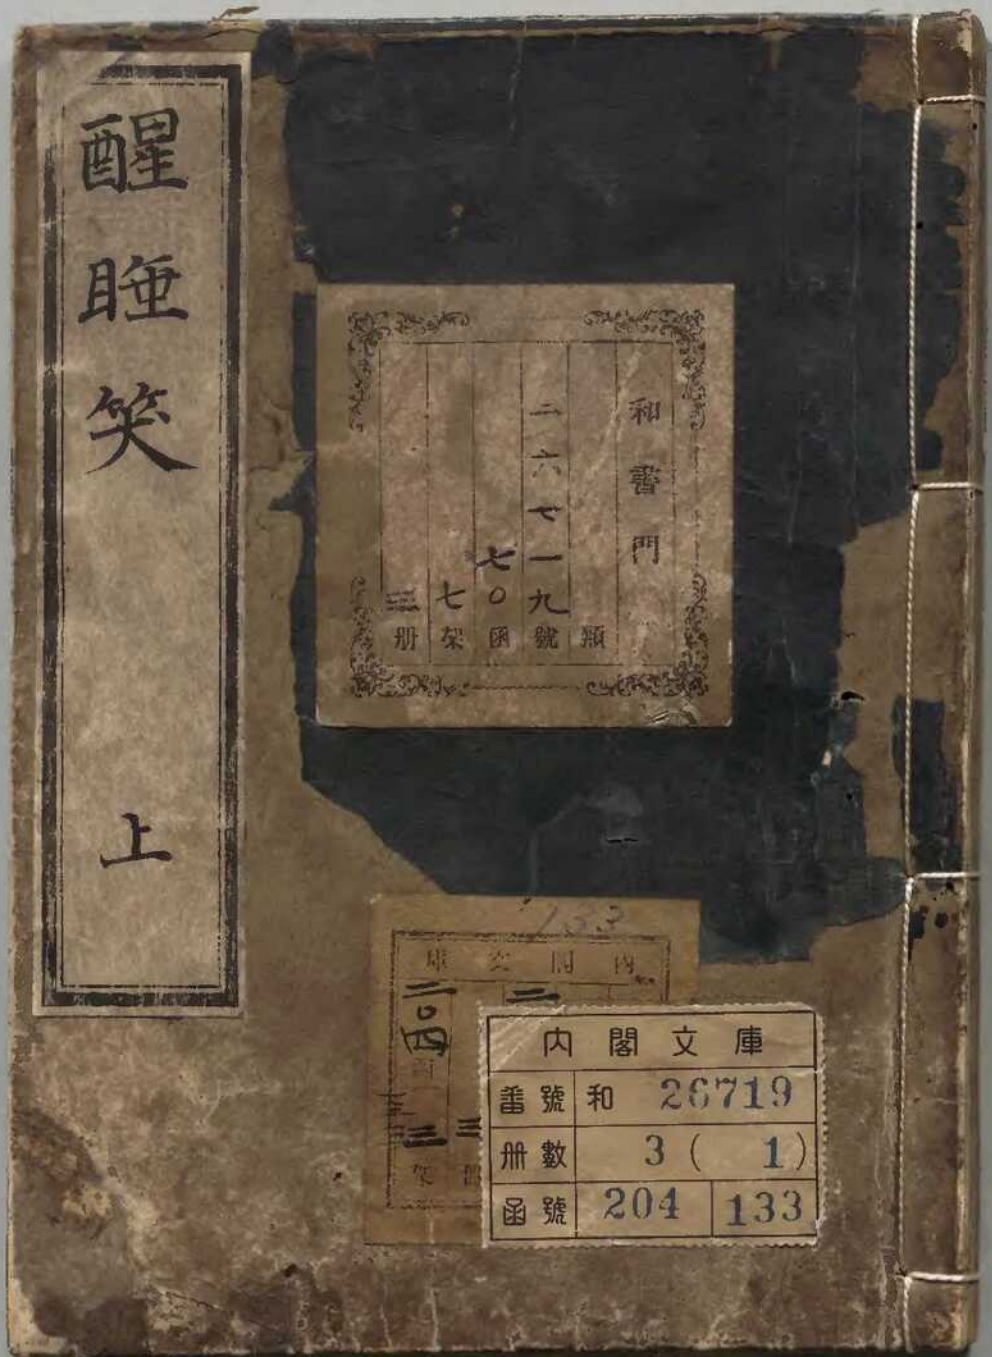 醒睡笑 上
和書門
類
二六七一九號
七〇函
七架
三册
133
內閣文庫
二〇四
三
架
內閣文庫
番號 和 26719
册數 3 ( 1 )
函號 204 133